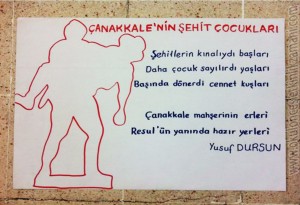 ÇANAKKALE'NİN ŞEHİT ÇOCUKLARI
Şehitlerin kınalıydı başları
Daha çocuk sayılırdı yaşları
Başında dönerdi cennet kuşları
Çanakkale mahşerinin erleri
Resul'ün yanında hazır yerleri
Yusuf DURSUN